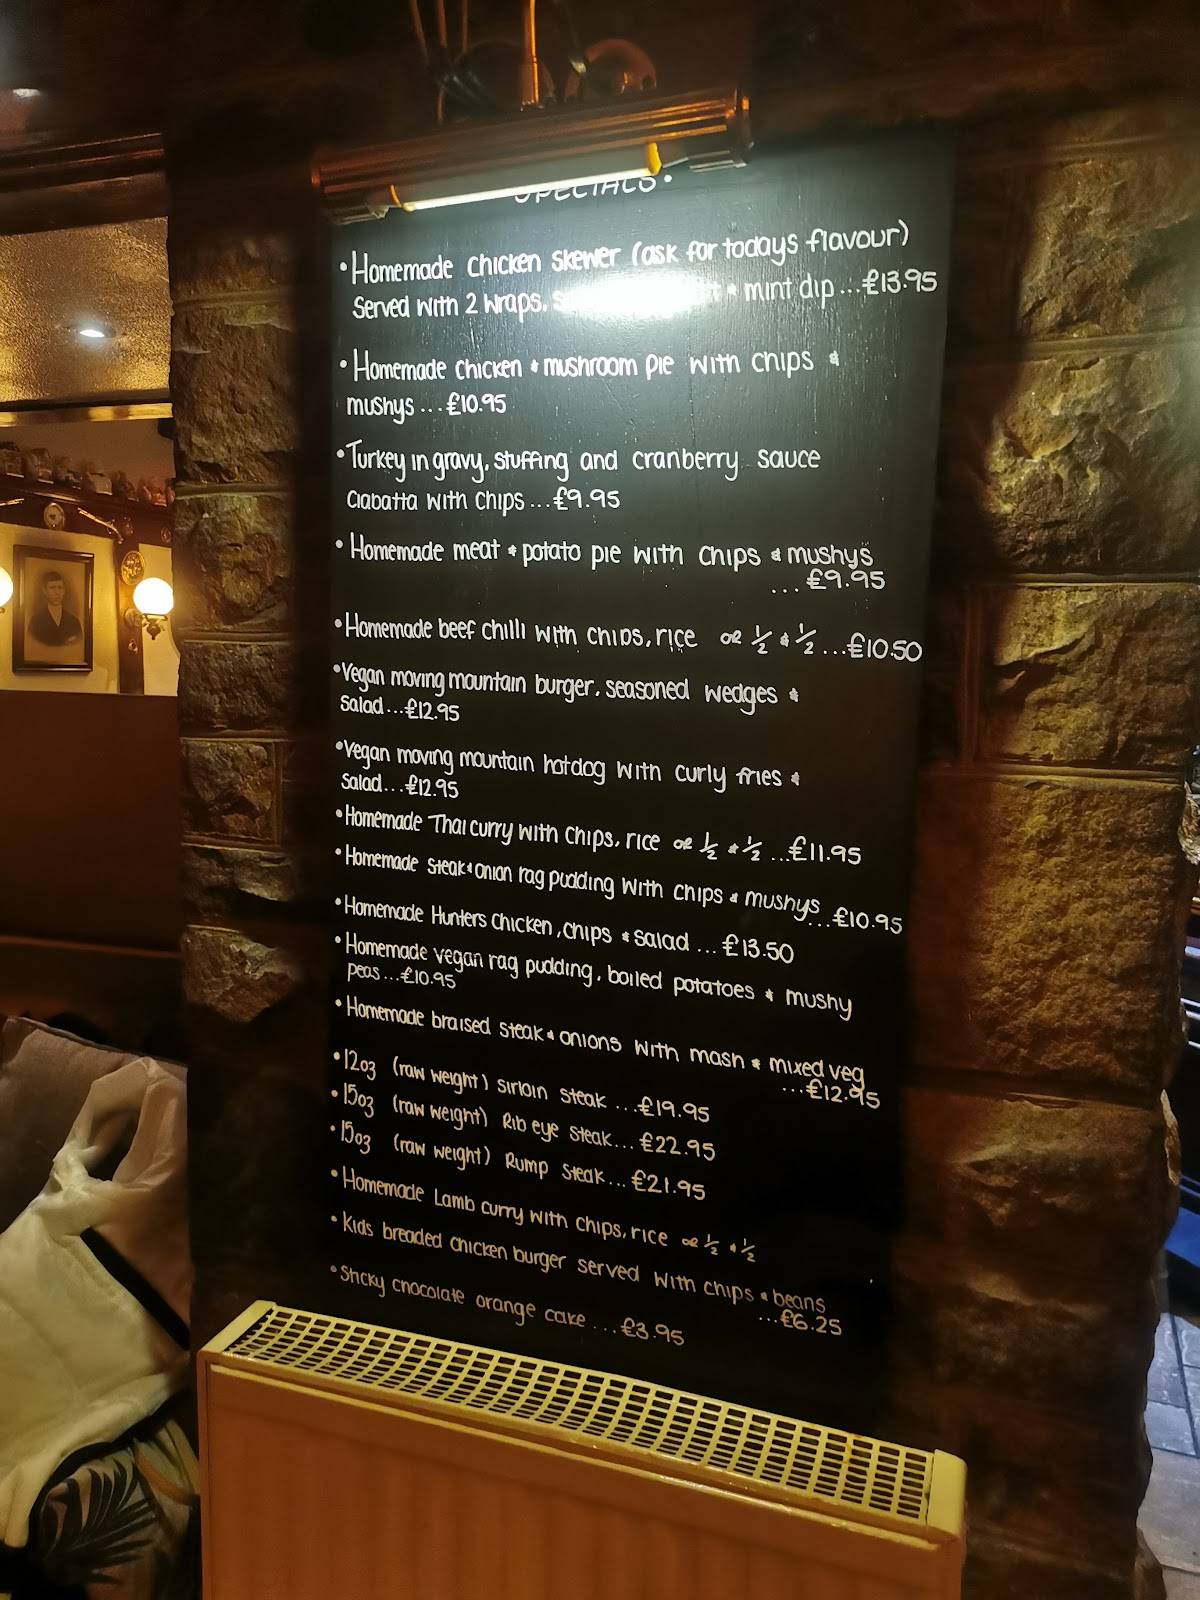 SPECIALS.
•Homemade chicken skewer (ask for todays flavour)
Served with 2 wraps, & mint dip...£13.95
•Homemade chicken & mushroom pie with chips &
mushys...£10.95
•Turkey in gravy, stuffing and cranberry sauce
Ciabatta with chips...£9.95
•Homemade meat & potato pie with chips & mushys
...£9.95
•Homemade beef chilli with chips, rice or ½ & ½...£10.50
•Vegan moving mountain burger, seasoned wedges &
salad...£12.95
•Vegan moving mountain hotdog with curly fries &
salad...£12.95
•Homemade Thai curry with chips, rice or ½ & ½...£11.95
•Homemade steak & onion rag pudding with chips & mushys...£10.95
•Homemade Hunters chicken, chips & salad...£13.50
•Homemade vegan rag pudding, boiled potatoes & mushy
peas...£10.95
•Homemade braised steak & onions with mash & mixed veg
...£12.95
•12oz (raw weight) sirloin steak...£19.95
•15oz (raw weight) Rib eye steak...£22.95
•15oz (raw weight) Rump steak...£21.95
•Homemade Lamb curry with chips, rice or ½ & ½
•Kids breaded chicken burger served with chips & beans
...£6.25
•Sticky chocolate orange cake...£3.95